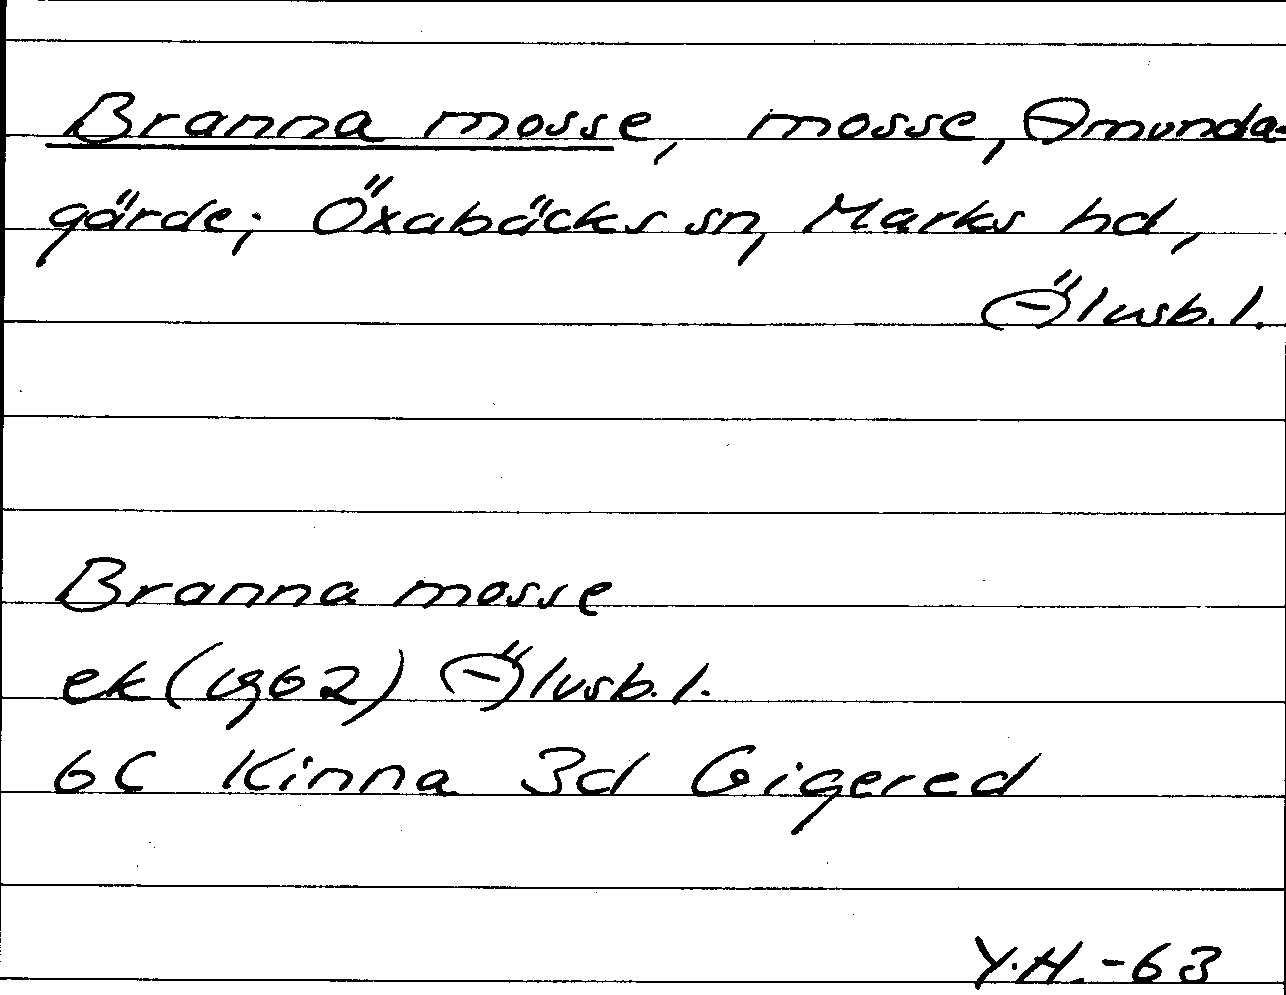 Branna mosse, mosse, Amunda-
gärde; Öxabäcks sn, Marks hd,
Älvsb. l.
Branna mosse
ek (1962) Älvsb. l.
6C Kinna 3d Gigered
Y.H.-63